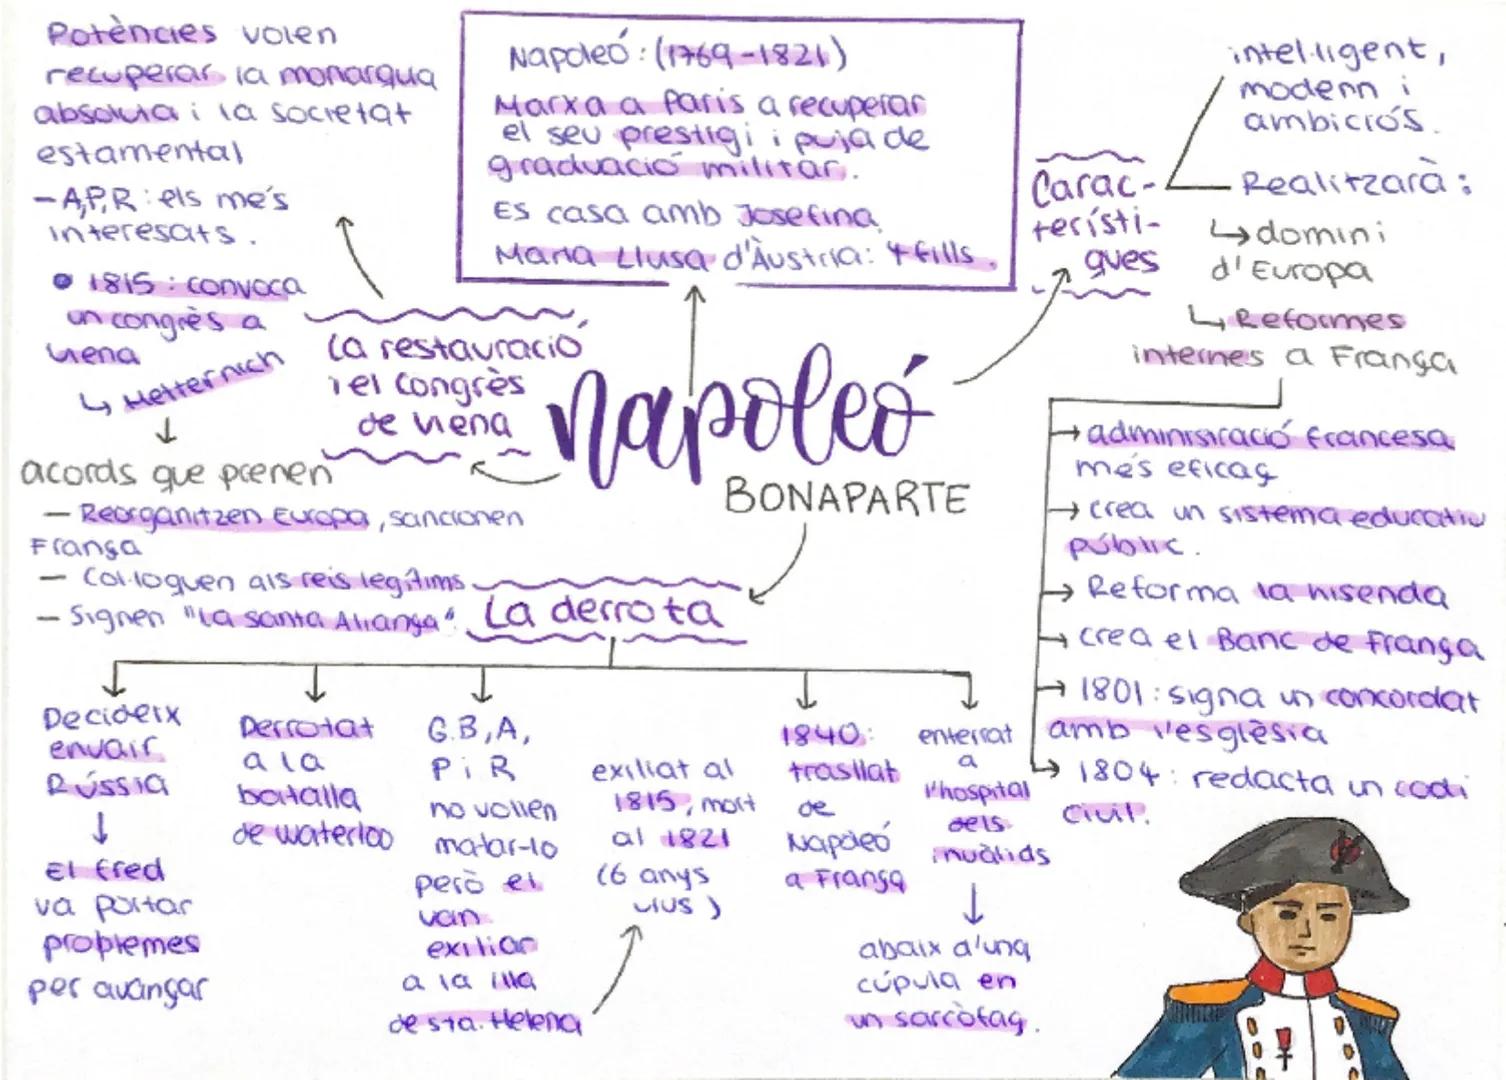 Potències volen
recuperar la monarquia
absoluta i la societat
estamental
- A,P,R: els més
interesats.
• 1815: convoca
un congrès a
Viena
↳ Metternich
↓
acords que prenen
- Reorganitzen Europa, sancionen
França
- Col·loquen als reis legítims
- Signen "La santa Aliança".
La restauració
i el Congrès
de Viena
Napoleó: (1769-1821)
Marxa a París a recuperar
el seu prestigi i puja de
graduació militar.
Es casa amb Josefina
Maria Lluïsa d'Àustria: 4 fills.
Napoleó
BONAPARTE
Carac-
terísti-
ques
intel·ligent,
modern i
ambiciós.
Realitzarà:
↳ domini
d'Europa
↳ Reformes
internes a França
→ administració francesa
més eficaç
→ crea un sistema educatiu
públic.
→ Reforma la hisenda
→ crea el Banc de França
→ 1801: signa un concordat
amb l'esglèsia
→ 1804: redacta un codi
civil.
La derrota
Decideix
envair
Rússia
↓
El fred
va portar
problemes
per avançar
Derrotat
a la
batalla
de waterloo
G.B, A,
P i R
no volien
matar-lo
però el
van
exiliar
a la illa
de sta. Helena
exiliat al
1815, mort
al 1821
(6 anys
vius)
1840:
trasllat
de
Napoleó
a França
enterrat
a
l'hospital
dels
invàlids
↓
abaix d'una
cúpula en
un sarcòfag.